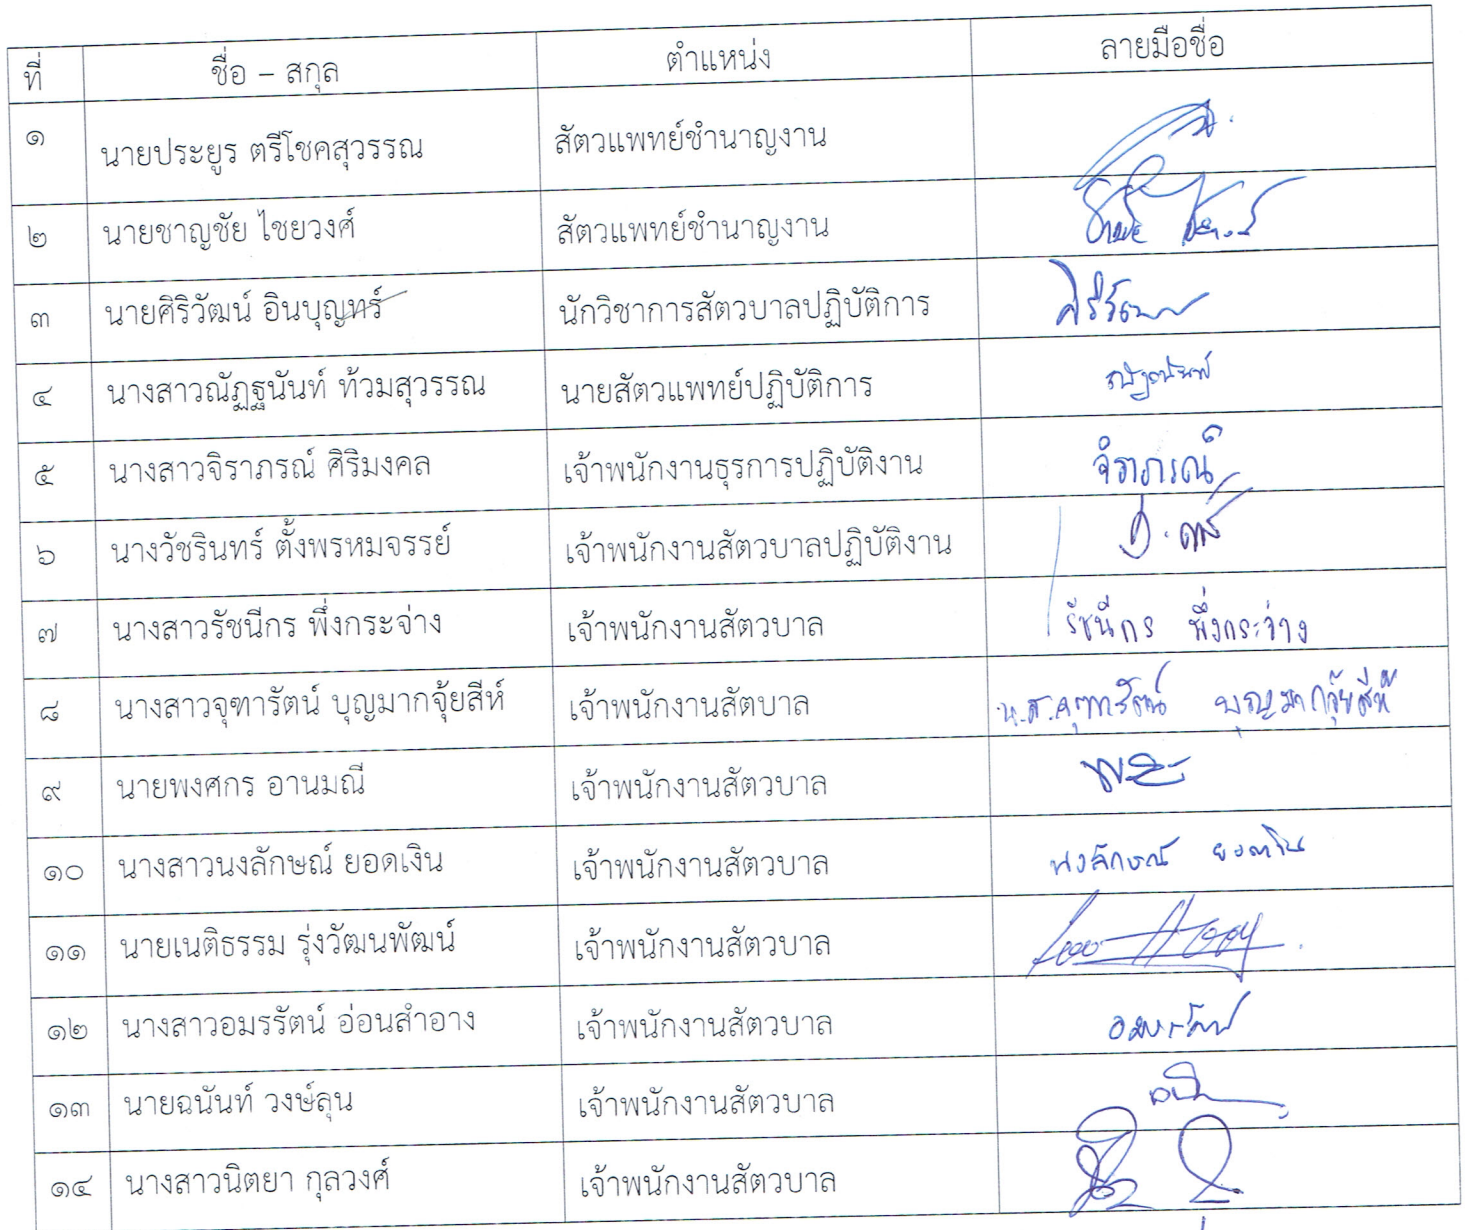 ที่ ชื่อ – สกุล ตำแหน่ง ลายมือชื่อ
๑ นายประยูร ตรีโชคสุวรรณ สัตวแพทย์ชำนาญงาน
๒ นายชาญชัย ไชยวงศ์ สัตวแพทย์ชำนาญงาน
๓ นายศิริวัฒน์ อินบุญทร์ นักวิชาการสัตวบาลปฏิบัติการ ศิริวัฒน์
๔ นางสาวณัฏฐนันท์ ท้วมสุวรรณ นายสัตวแพทย์ปฏิบัติการ ณัฏฐนันท์
๕ นางสาวจิราภรณ์ ศิริมงคล เจ้าพนักงานธุรการปฏิบัติงาน จิราภรณ์
๖ นางวัชรินทร์ ตั้งพรหมจรรย์ เจ้าพนักงานสัตวบาลปฏิบัติงาน
๗ นางสาวรัชนีกร พึ่งกระจ่าง เจ้าพนักงานสัตวบาล รัชนีกร พึ่งกระจ่าง
๘ นางสาวจุฑารัตน์ บุญมากจุ้ยสีห์ เจ้าพนักงานสัตบาล น.ส.จุฑารัตน์ บุญมากจุ้ยสีห์
๙ นายพงศกร อานมณี เจ้าพนักงานสัตวบาล
๑๐ นางสาวนงลักษณ์ ยอดเงิน เจ้าพนักงานสัตวบาล นงลักษณ์ ยอดเงิน
๑๑ นายเนติธรรม รุ่งวัฒนพัฒน์ เจ้าพนักงานสัตวบาล
๑๒ นางสาวอมรรัตน์ อ่อนสำอาง เจ้าพนักงานสัตวบาล อมรรัตน์
๑๓ นายฉนันท์ วงษ์ลุน เจ้าพนักงานสัตวบาล
๑๔ นางสาวนิตยา กุลวงศ์ เจ้าพนักงานสัตวบาล